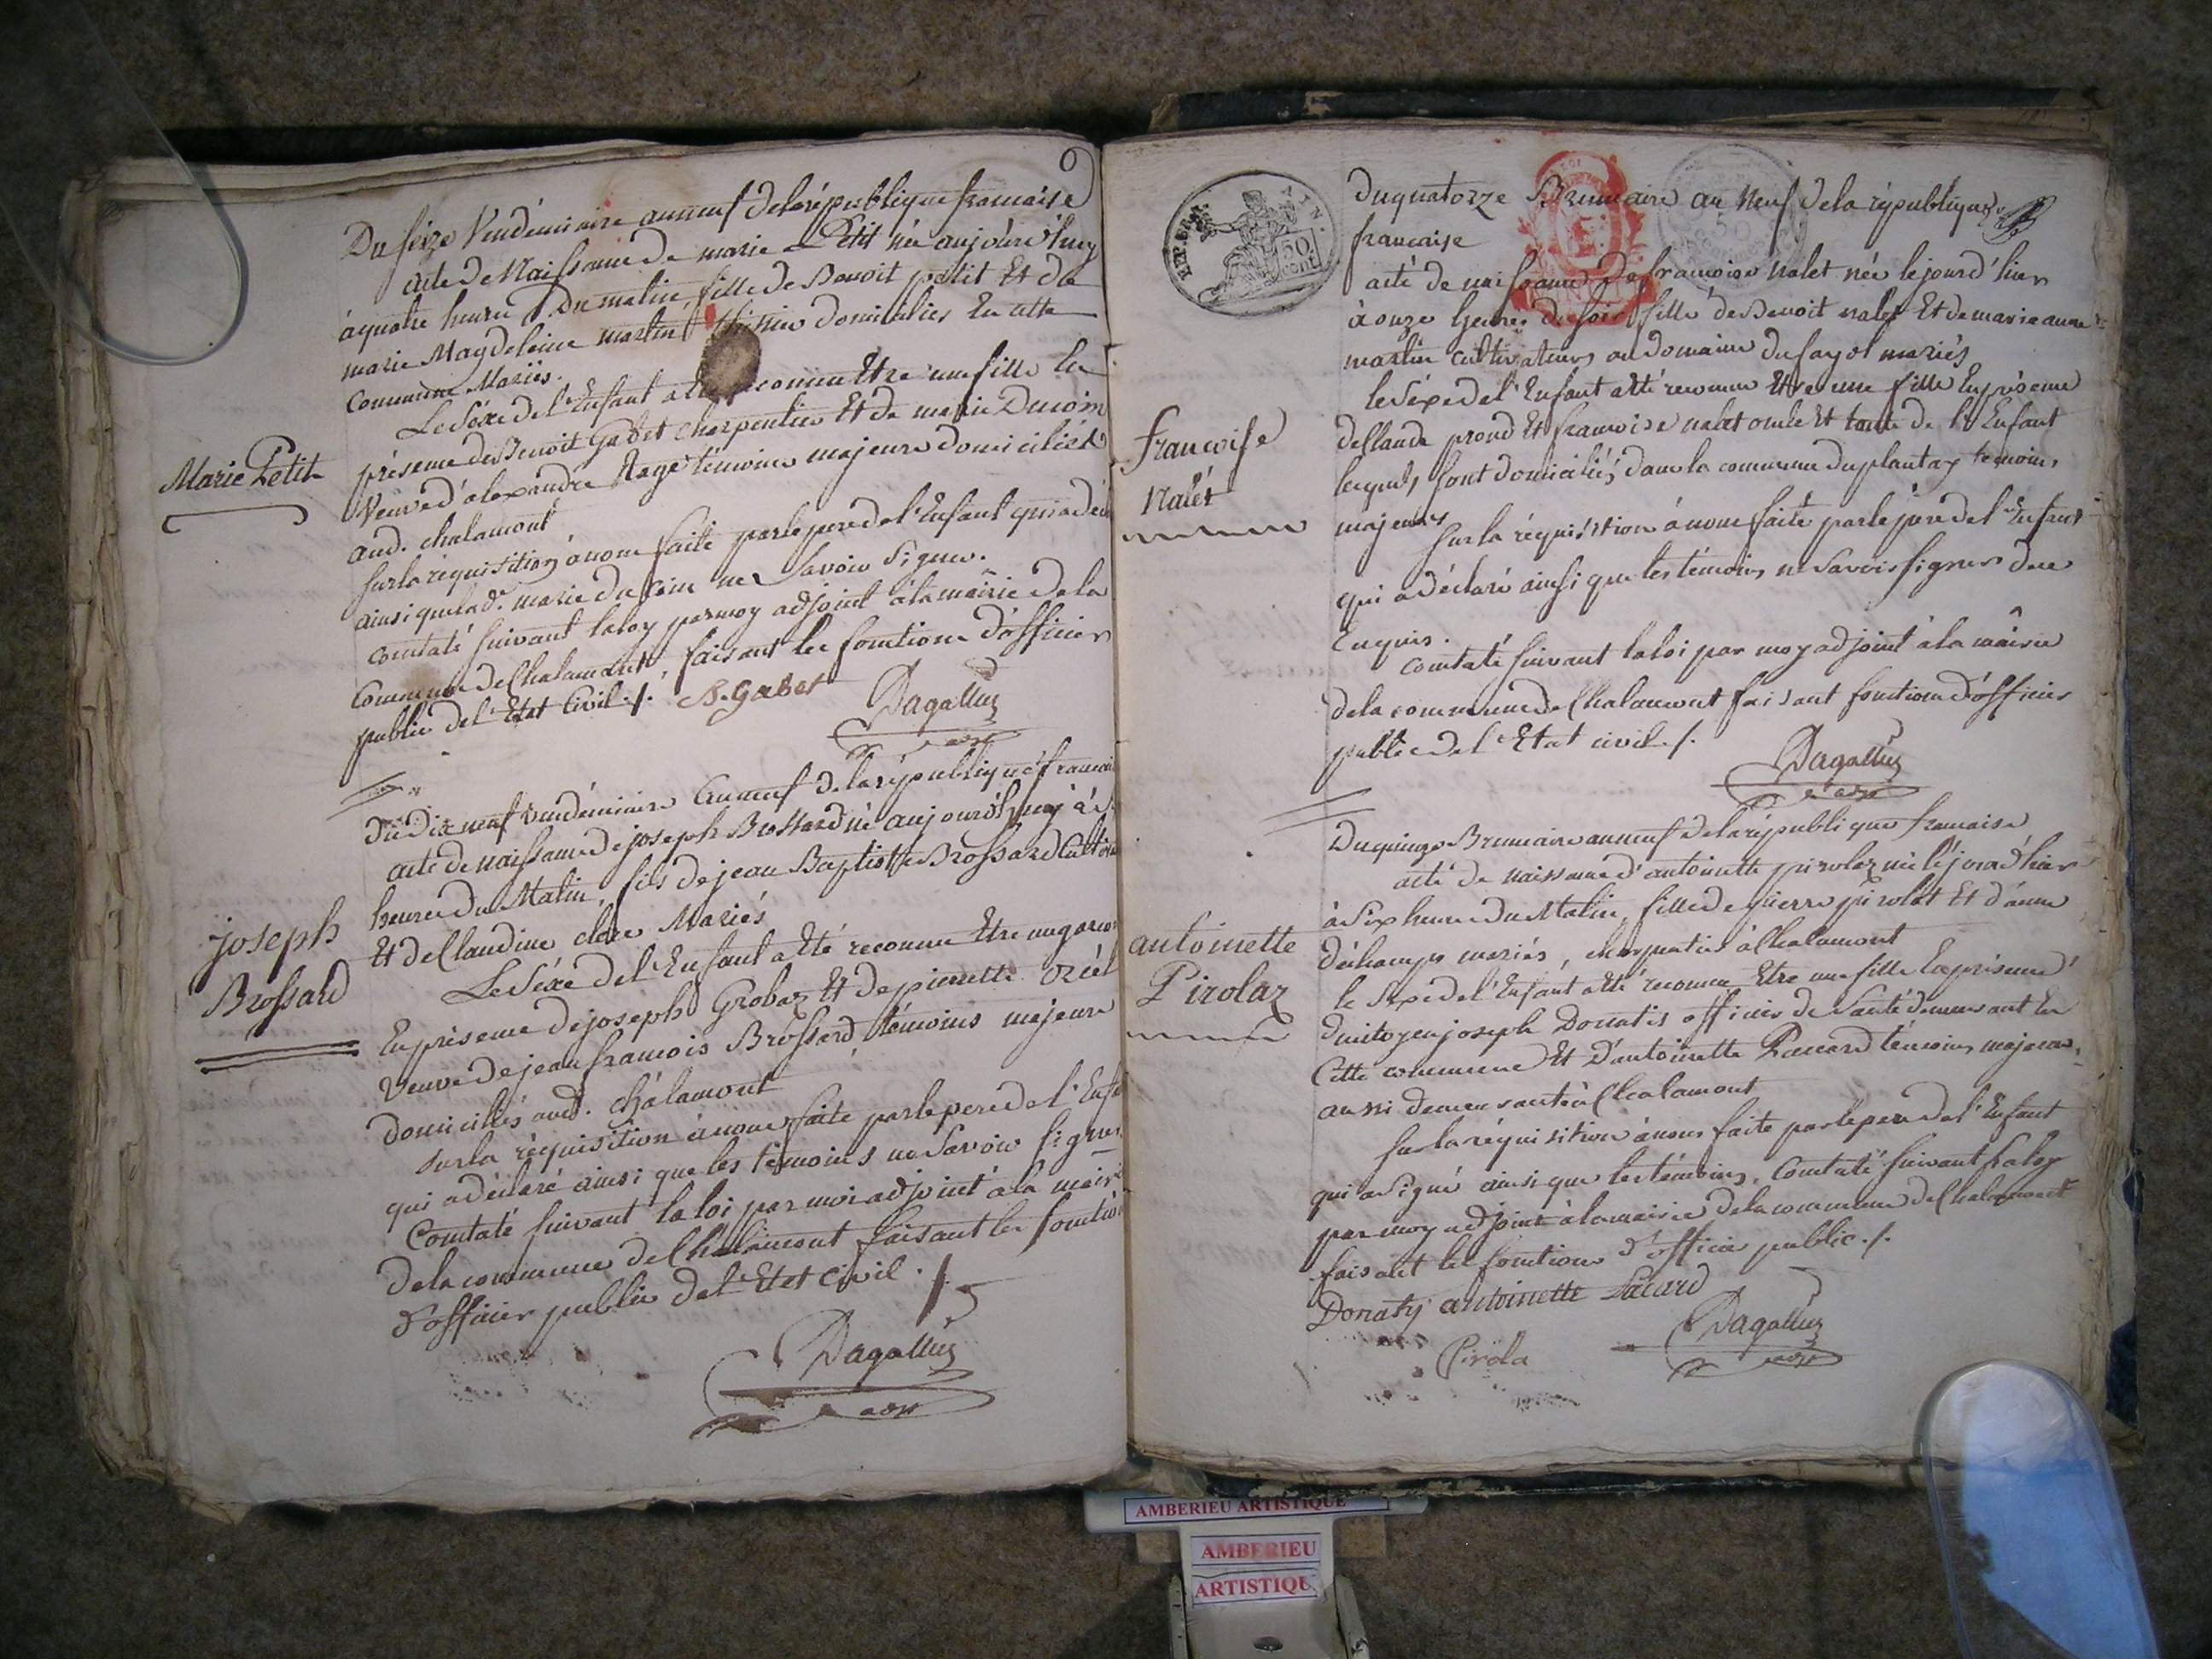 Du seize Vendémiaire an neuf de la république francaise
acte de Naissance de marie Petit née aujourd'huy
à quatre heures du matin, fille de Benoit petit Et de
marie Magdeleine martin domiciliés En cette
commune Mariés.
Le Séxe de l'Enfant a été reconnu Etre une fille En
présence de Benoit Gabet charpentier Et de marie
Veuve d'alexandre témoins majeurs domiciliés
aud. chalamont
Marie Petit
sur la réquisition à nous faite par le pere de l'Enfant qui a
ainsi que lad. marie ne Savoir Signer.
constaté suivant la loy par moy adjoint à la mairie de la
Commune de Chalamont faisant les fonctions d'officier
public de l'Etat Civil ./. B. Gabet Dagallier
adjt
du dix neuf vendémiaire an neuf de la république
acte de naissance de joseph Brossard né aujourd'huy à
heures du Matin, fils de jean Baptiste Brossard
Et de Claudine Mariés
joseph
Brossard
Le Séxe de l'Enfant a Eté reconnu Etre un garcon
En présence de joseph Grobaz Et de pierrette
Veuve de jean francois Brossard, témoins majeurs
domiciliés aud. chalamont
sur la réquisition à nous faite par le pere de
qui a déclaré ainsi que les témoins ne Savoir Signer
Constaté suivant la loi par moi adjoint à la mairie
de la commune de Chalamont faisant les
d'officier public de l'Etat Civil ./.
Dagallier
adjt
50
cent.
du quatorze Brumaire an Neuf de la république
francaise
acte de naissance de francoise Nalet née le jour d'hier
à onze heures du soir fille de Benoit nalet Et de marie anne
martin cultivateurs au domaine du fayol mariés
le séxe de l'Enfant a été reconnu Etre une fille En présence
de Claude Et francoise nalet oncle Et tante de l'Enfant
lesquels sont domiciliés dans la commune du plantay témoins
majeurs
francoise
Nalet
sur la réquisition à nous faite par le père de l'Enfant
qui a déclaré ainsi que les témoins ne Savoir signer de ce
Enquis.
constaté suivant la loi par moy adjoint à la mairie
de la commune de Chalamont faisant fonctions d'officier
public de l'Etat civil ./.
Dagallier
adjt
Du quinze Brumaire an neuf de la république francaise
acte de naissance d'antoinette pirolaz née le jour d'hier
à Six heures du Matin, fille de pierre pirolat Et d'anne
déchamps mariés, charpentier à Chalamont
antoinette
Pirolaz
le Sexe de l'Enfant a été reconnu Etre une fille En présence
du citoyen joseph Donatis officier de Santé demeurant En
Cette commune Et D'antoinette Pacard témoins majeurs,
aussi demeurante à Chalamont
sur la réquisition à nous faite par le pere de l'Enfant
qui a Signé ainsi que les témoins. Constaté suivant la loy
par moy adjoint à la mairie de la commune de Chalamont
faisant les fonctions d'officier public ./.
Donatis antoinette Pacard
Pirola Dagallier
adjt
AMBERIEU ARTISTIQUE
AMBERIEU
ARTISTIQU